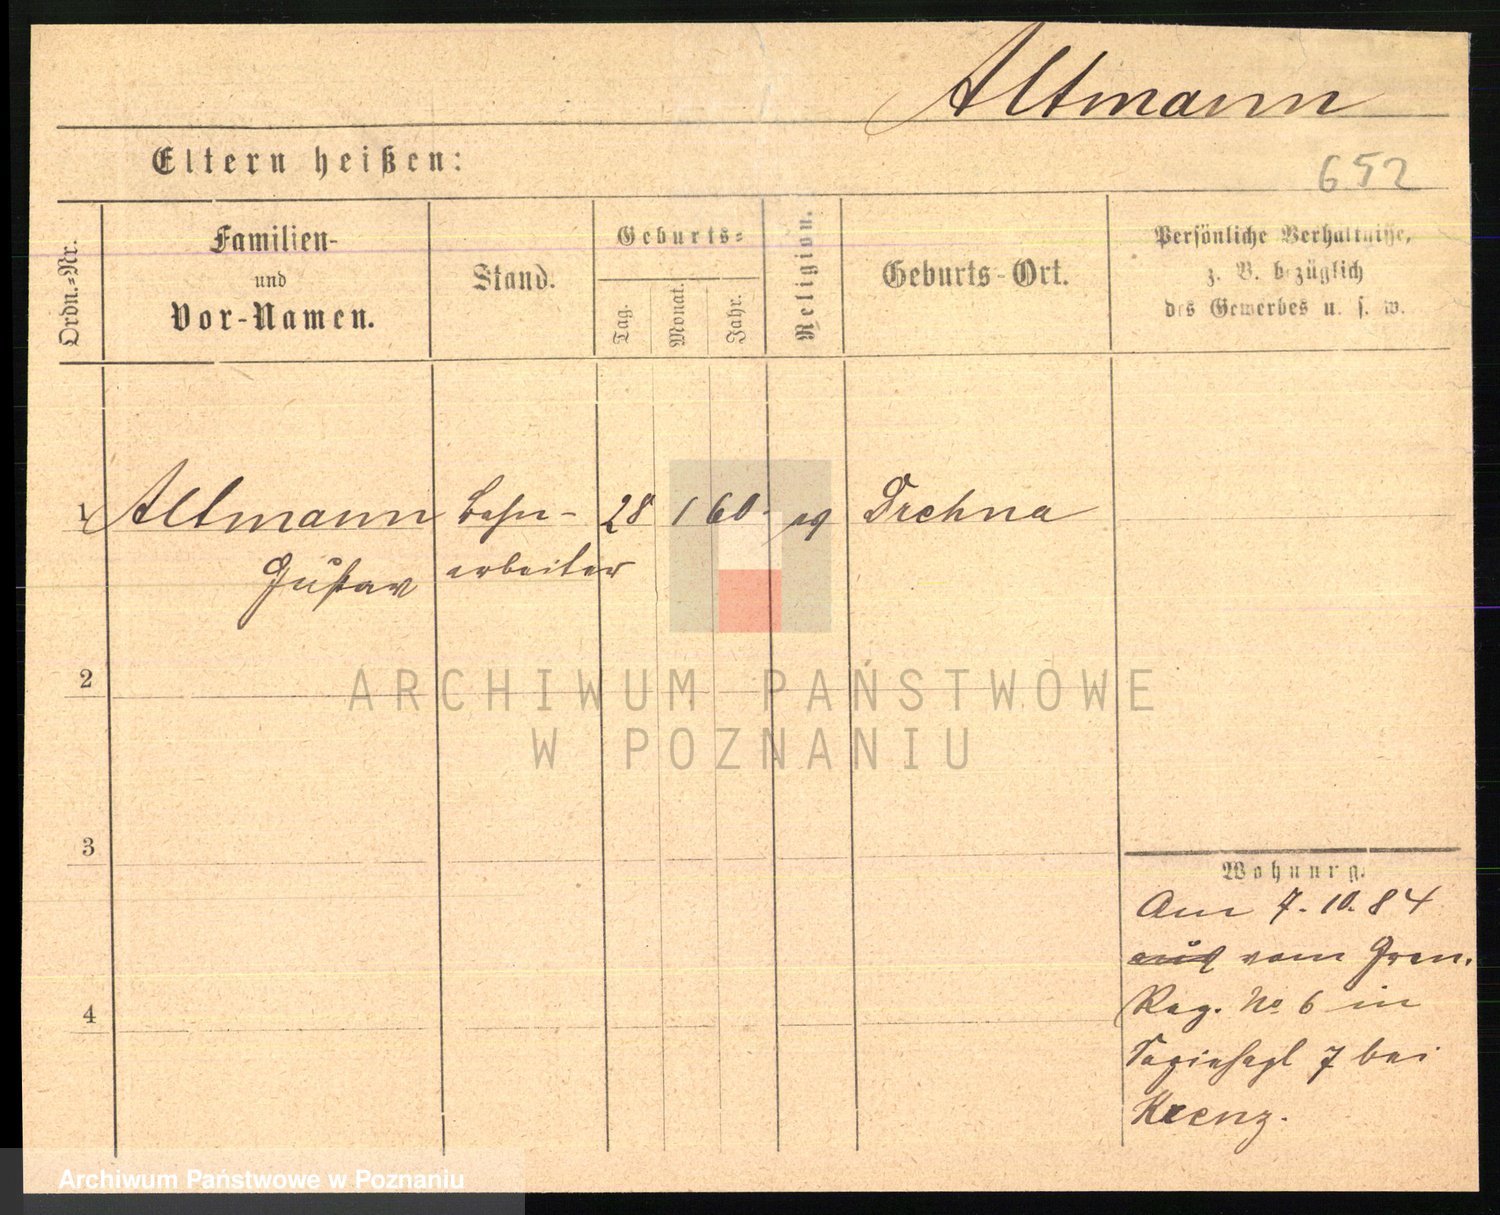 Altmann
Eltern heißen:
652
Ordn.=Nr.
Familien-
und
Vor-Namen.
Stand.
Geburts=
Tag.
Monat.
Jahr.
Religion.
Geburts-Ort.
Persönliche Verhältnisse,
z. B. bezüglich
des Gewerbes u. s. w.
1 Altmann Bahn- 28 1 60. ev Drehna
Gustav arbeiter
2
ARCHIWUM PAŃSTWOWE
W POZNANIU
3
Wohnung.
Am 7. 10. 84
aus vom Gren.
Reg. No 6 in
7 bei
Krenz.
4
Archiwum Państwowe w Poznaniu